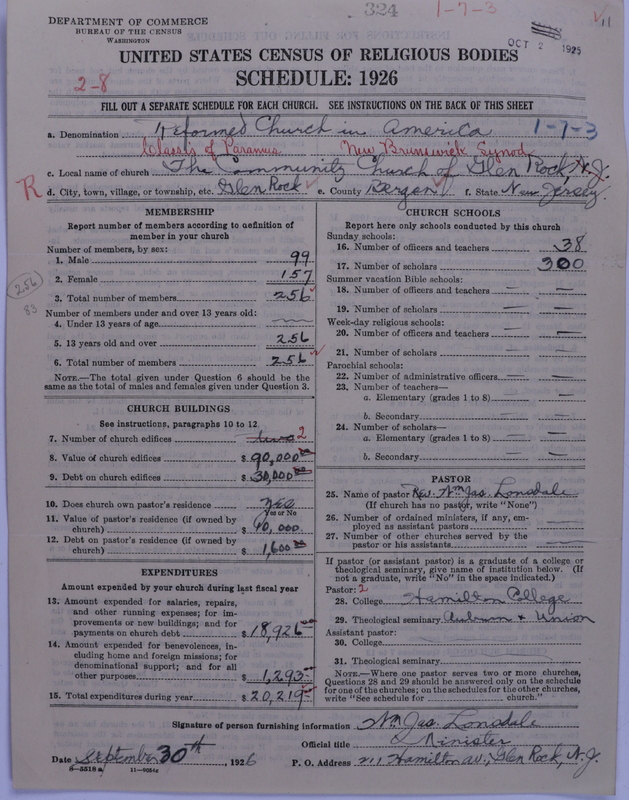 324
1-7-3
11
DEPARTMENT OF COMMERCE
BUREAU OF THE CENSUS
WASHINGTON
OCT 2 1925
UNITED STATES CENSUS OF RELIGIOUS BODIES
SCHEDULE: 1926
2-8
FILL OUT A SEPARATE SCHEDULE FOR EACH CHURCH. SEE INSTRUCTIONS ON THE BACK OF THIS SHEET
a. Denomination Reformed Church in America 1-7-3
Classis of Paramus New Brunswick Synod
c. Local name of church The Community Church of Glen Rock N.J.
R d. City, town, village, or township, etc. Glen Rock e. County Bergen f. State New Jersey
MEMBERSHIP
Report number of members according to definition of
member in your church
Number of members, by sex:
1. Male 99
2. Female 157
3. Total number of members 256
256
83
Number of members under and over 13 years old:
4. Under 13 years of age
5. 13 years old and over 256
6. Total number of members 256
NOTE.—The total given under Question 6 should be the
same as the total of males and females given under Question 3.
CHURCH BUILDINGS
See instructions, paragraphs 10 to 12
7. Number of church edifices 2
8. Value of church edifices $ 90,000 00
9. Debt on church edifices $ 30,000 00
10. Does church own pastor's residence Yes
Yes or No
11. Value of pastor's residence (if owned by
church) $ 10,000.
12. Debt on pastor's residence (if owned by
church) $ 1,600 00
EXPENDITURES
Amount expended by your church during last fiscal year
13. Amount expended for salaries, repairs,
and other running expenses; for im-
provements or new buildings; and for
payments on church debt $ 18,926 00
14. Amount expended for benevolences, in-
cluding home and foreign missions; for
denominational support; and for all
other purposes $ 1,293 00
15. Total expenditures during year $ 20,219 00
CHURCH SCHOOLS
Report here only schools conducted by this church
Sunday schools:
16. Number of officers and teachers 38
17. Number of scholars 300
Summer vacation Bible schools:
18. Number of officers and teachers
19. Number of scholars
Week-day religious schools:
20. Number of officers and teachers
21. Number of scholars
Parochial schools:
22. Number of administrative officers
23. Number of teachers—
a. Elementary (grades 1 to 8)
b. Secondary
24. Number of scholars—
a. Elementary (grades 1 to 8)
b. Secondary
PASTOR
25. Name of pastor Rev. Wm Jas. Lonsdale
(If church has no pastor, write "None")
26. Number of ordained ministers, if any, em-
ployed as assistant pastors
27. Number of other churches served by the
pastor or his assistants
If pastor (or assistant pastor) is a graduate of a college or
theological seminary, give name of institution below. (If
not a graduate, write "No" in the space indicated.)
Pastor: 2
28. College Hamilton College
29. Theological seminary Auburn & Union
Assistant pastor:
30. College
31. Theological seminary
NOTE.—Where one pastor serves two or more churches,
Questions 28 and 29 should be answered only on the schedule
for one of the churches; on the schedules for the other churches,
write "See schedule for church."
Signature of person furnishing information Wm Jas. Lonsdale
Official title Minister
Date September 30th, 1926 P. O. Address 211 Hamilton av., Glen Rock, N.J.
8-5518 a 11-9054